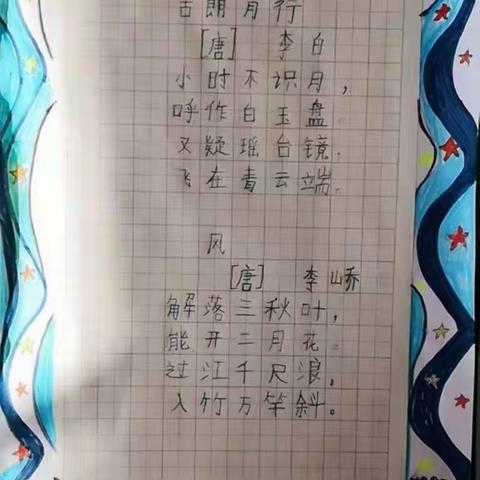 古朗月行
[唐] 李白
小时不识月，
呼作白玉盘。
又疑瑶台镜，
飞在青云端。
风
[唐] 李峤
解落三秋叶，
能开二月花。
过江千尺浪，
入竹万竿斜。